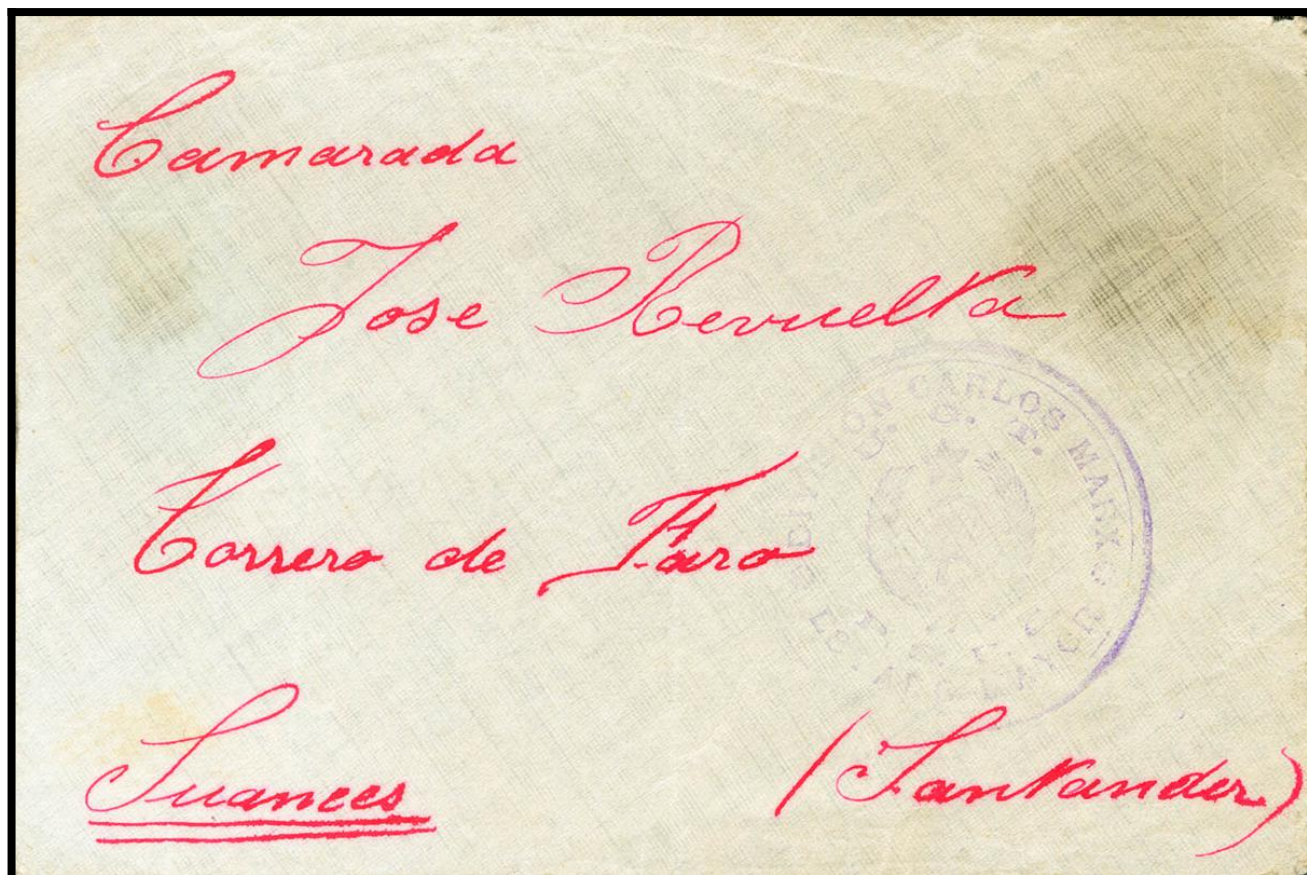 Camarada
Jose Revuelta
Torrero de Faro
Suances
(Santander)
DIVISION CARLOS MARX
U. G. T.